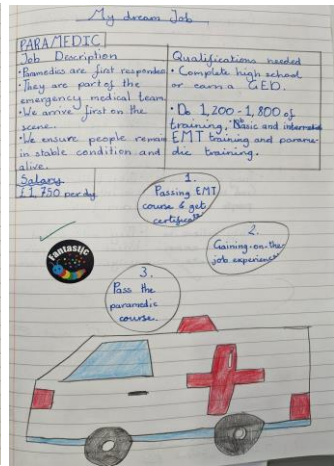 My dream Job
PARAMEDIC
Job Description
•Paramedics are first responders
•They are part of the
emergency medical team
•We arrive first on the
scene.
•We ensure people remain
in stable condition and
alive
Salary
£1,750 per day
Qualifications needed
• Complete high school
or earn a GED.
• Do 1,200 - 1,800 of
training. Basic and
EMT training and parame-
dic training.
1.
Passing EMT
course & get
certificate
2.
Gaining on the
job experience
3.
Pass the
paramedic
course.
Fantastic